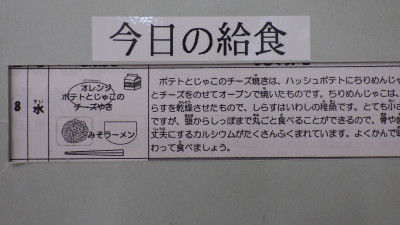 今日の給食
8
水
すい
オレンジ
ポテトとじゃこの
チーズやき
みそラーメン
ポテトとじゃこのチーズ焼きは、ハッシュポテトにちりめんじゃ
とチーズをのせてオーブンで焼いたものです。ちりめんじゃこは、
らすを乾燥させたもので、しらすはいわしの稚魚です。とても小さ
ですが、頭からしっぽまで丸ごと食べることができるので、骨や歯
丈夫にするカルシウムがたくさんふくまれています。よくかんで味
わって食べましょう。